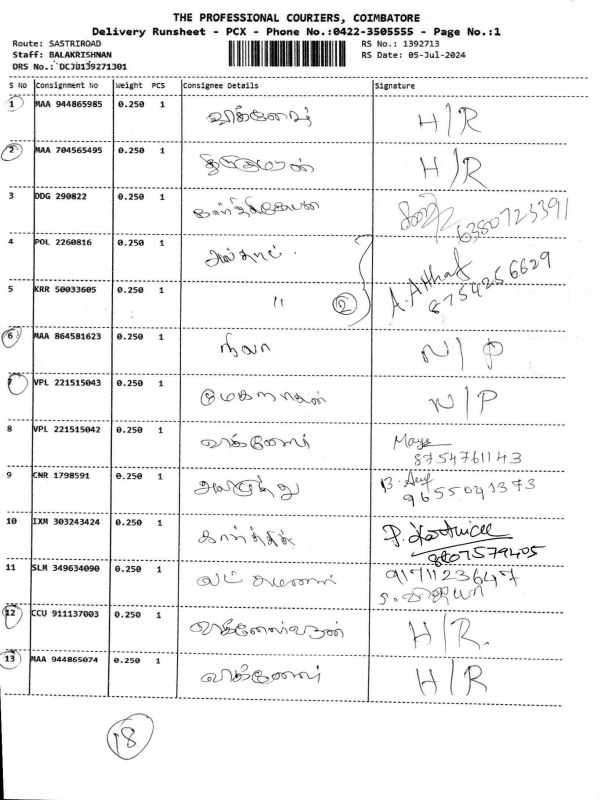 THE PROFESSIONAL COURIERS, COIMBATORE
Delivery Runsheet - PCX - Phone No.:0422-3505555 - Page No.:1
Route: SASTRIROAD
RS No.: 1392713
Staff: BALAKRISHNAN
RS Date: 05-Jul-2024
DRS No.: DCJB139271301
S No Consignment No Weight PCS Consignee Details Signature
1 MAA 944865985 0.250 1 H/R
2 MAA 704565495 0.250 1 H/R
3 DDG 290822 0.250 1 கார்த்திகேயன் 6380723391
4 POL 2260816 0.250 1 A. Atthaf
5 KRR 50033605 0.250 1 " 2 8754256629
6 MAA 864581623 0.250 1 நிலா N/P
7 VPL 221515043 0.250 1 மேகநாதன் N/P
8 VPL 221515042 0.250 1
8754761143
9 CNR 1798591 0.250 1
9655041373
10 IXM 303243424 0.250 1 கார்த்திக் P. Karthick
8807579405
11 SLM 349634090 0.250 1 91711123647
12 CCU 911137003 0.250 1 H/R.
13 MAA 944865074 0.250 1 H/R
8